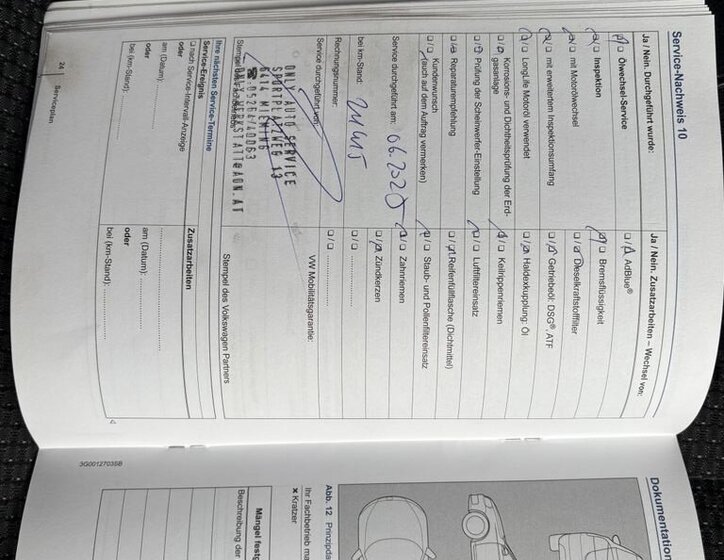 Service-Nachweis 10
Ja / Nein. Durchgeführt wurde:
Ölwechsel-Service
Inspektion
mit Motorölwechsel
mit erweitertem Inspektionsumfang
LongLife Motoröl verwendet
Korrosions- und Dichtheitsprüfung der Erd-
gasanlage
Prüfung der Scheinwerfer-Einstellung
Reparaturempfehlung
Kundenwunsch
(auch auf dem Auftrag vermerken)
Service durchgeführt am: 06.2025
bei km-Stand:
Rechnungsnummer:
Service durchgeführt von:
ONLY AUTO SERVICE
SPORTPLATZWEG 13
6414 MIEMING
Ihre nächsten Service-Termine
Service-Ereignis
nach Service-Intervall-Anzeige
oder
am (Datum):
oder
bei (km-Stand):
24 Serviceplan
Ja / Nein. Zusatzarbeiten – Wechsel von:
AdBlue®
Bremsflüssigkeit
Dieselkraftstofffilter
Getriebeöl: DSG®, ATF
Haldexkupplung: Öl
Keilrippenriemen
Luftfiltereinsatz
Reifenfüllflasche (Dichtmittel)
Staub- und Pollenfiltereinsatz
Zahnriemen
Zündkerzen
VW Mobilitätsgarantie:
Stempel des Volkswagen Partners
Zusatzarbeiten
am (Datum):
oder
bei (km-Stand):
3G0012703SB
Dokumentation
Abb. 12 Prinzipda
Ihr Fachbetrieb ma
× Kratzer
Mängel festg
Beschreibung der